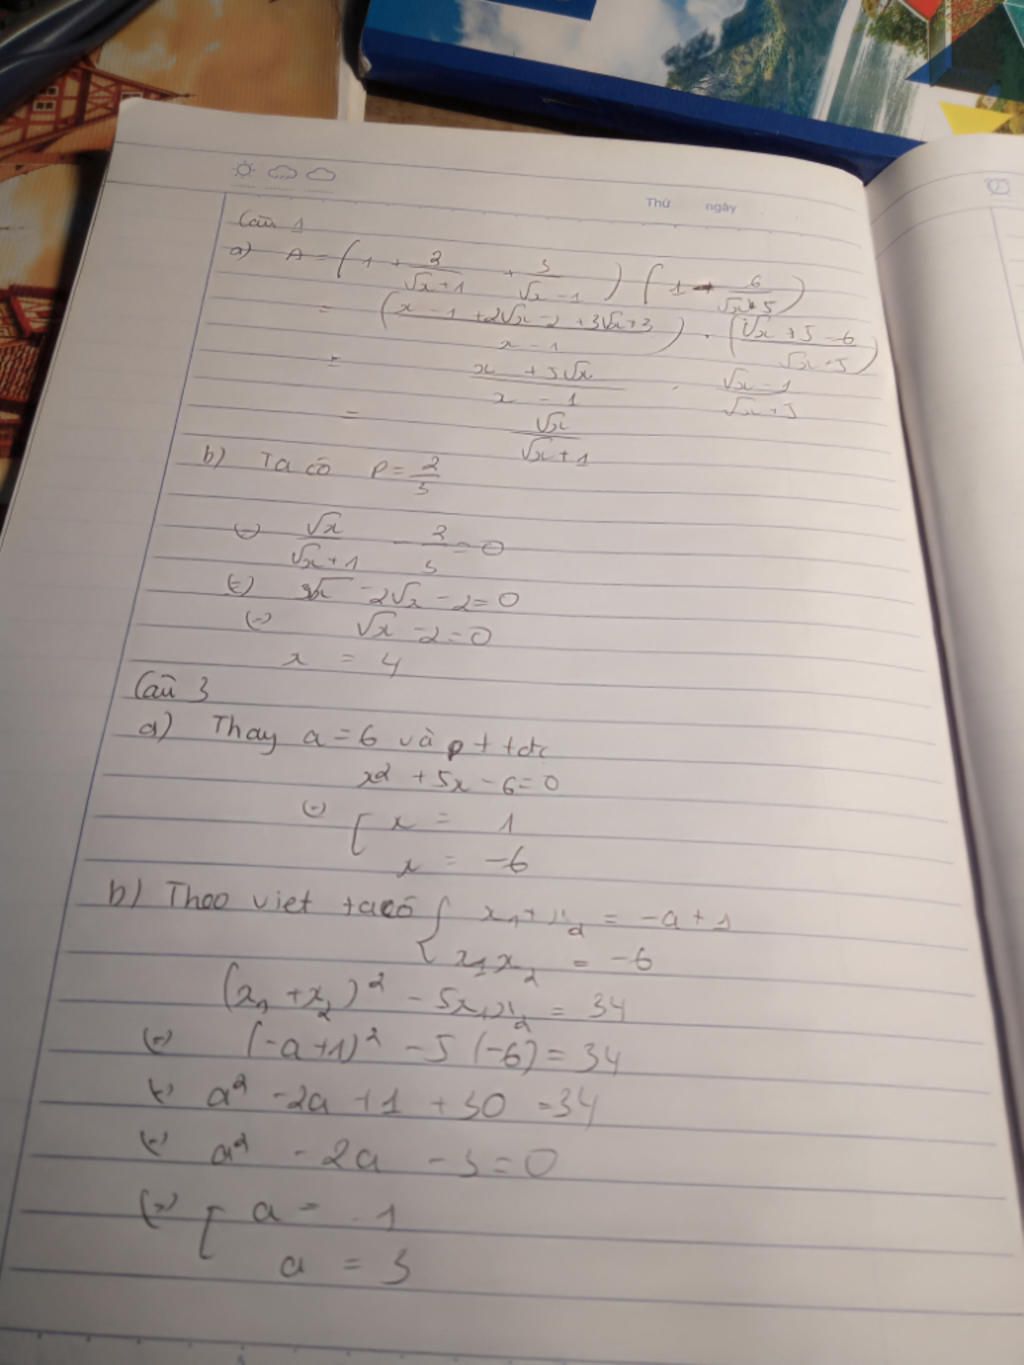 Thứ ngày
Câu 1
a) A = (1 + 2/(√x+1) + 3/(√x-1)) (1 - 6/(√x+5))
= ((x - 1 + 2√x - 2 + 3√x + 3)/(x - 1)) . ((√x + 5 - 6)/(√x+5))
= (x + 5√x)/(x - 1) . (√x - 1)/(√x + 5)
= √x/(√x + 1)
b) Ta có P = 2/3
(=) √x/(√x+1) - 2/3 = 0
(=) 3√x - 2√x - 2 = 0
(=) √x - 2 = 0
x = 4
Câu 3
a) Thay a = 6 và pt tđc
x² + 5x - 6 = 0
(=) [ x = 1
x = -6
b) Theo viet ta có { x₁ + x₂ = -a + 1
x₁x₂ = -6
(x₁ + x₂)² - 5x₁x₂ = 34
(=) (-a + 1)² - 5(-6) = 34
(=) a² - 2a + 1 + 30 = 34
(=) a² - 2a - 3 = 0
(=) [ a = -1
a = 3